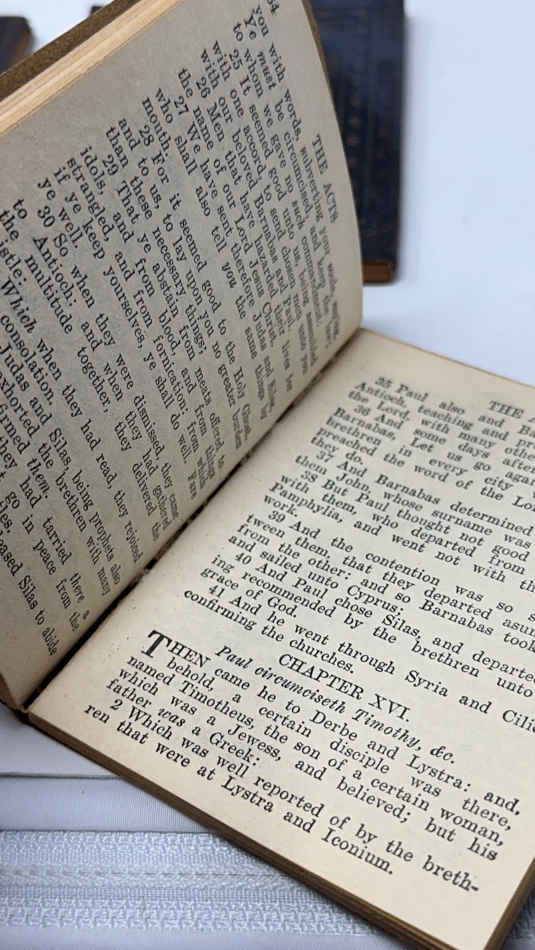 THE ACTS
you with words, subverting your souls,
Ye must be circumcised, and keep the
to whom we gave no
25 It seemed good unto us, being
with one accord, to send chosen men unto you
with our beloved Barnabas and Paul,
26 Men that have hazarded their lives for
the name of our Lord Jesus Christ.
27 We have sent therefore Judas and Silas,
who shall also tell you the same things by
mouth.
28 For it seemed good to the Holy Ghost,
and to us, to lay upon you no greater burden
than these necessary things;
29 That ye abstain from meats offered to
idols, and from blood, and from things
strangled, and from fornication: from which
if ye keep yourselves, ye shall do well. Fare
ye well.
30 So when they were dismissed, they came
to Antioch: and when they had gathered
the multitude together, they delivered the
istle:
Which when they had read, they rejoiced
consolation.
Judas and Silas, being prophets also
exhorted the brethren with many
firmed them.
they had tarried there a
go in peace from the
eased Silas to abide
THE
35 Paul also and
Antioch, teaching and
the Lord, with many
36 And some days after
Barnabas, Let us go again
brethren in every city
preached the word of the
they do.
37 And Barnabas determined
them John, whose surname was
38 But Paul thought not good
with them, who departed from
Pamphylia, and went not with
work.
39 And the contention was so
tween them, that they departed
from the other: and so Barnabas took
and sailed unto Cyprus;
40 And Paul chose Silas, and departed
ing recommended by the brethren unto
grace of God.
41 And he went through Syria and
confirming the churches.
CHAPTER XVI.
Paul circumciseth Timothy, &c.
THEN came he to Derbe and Lystra: and,
behold, a certain disciple was there,
named Timotheus, the son of a certain woman,
which was a Jewess, and believed; but his
father was a Greek:
2 Which was well reported of by the breth-
ren that were at Lystra and Iconium.